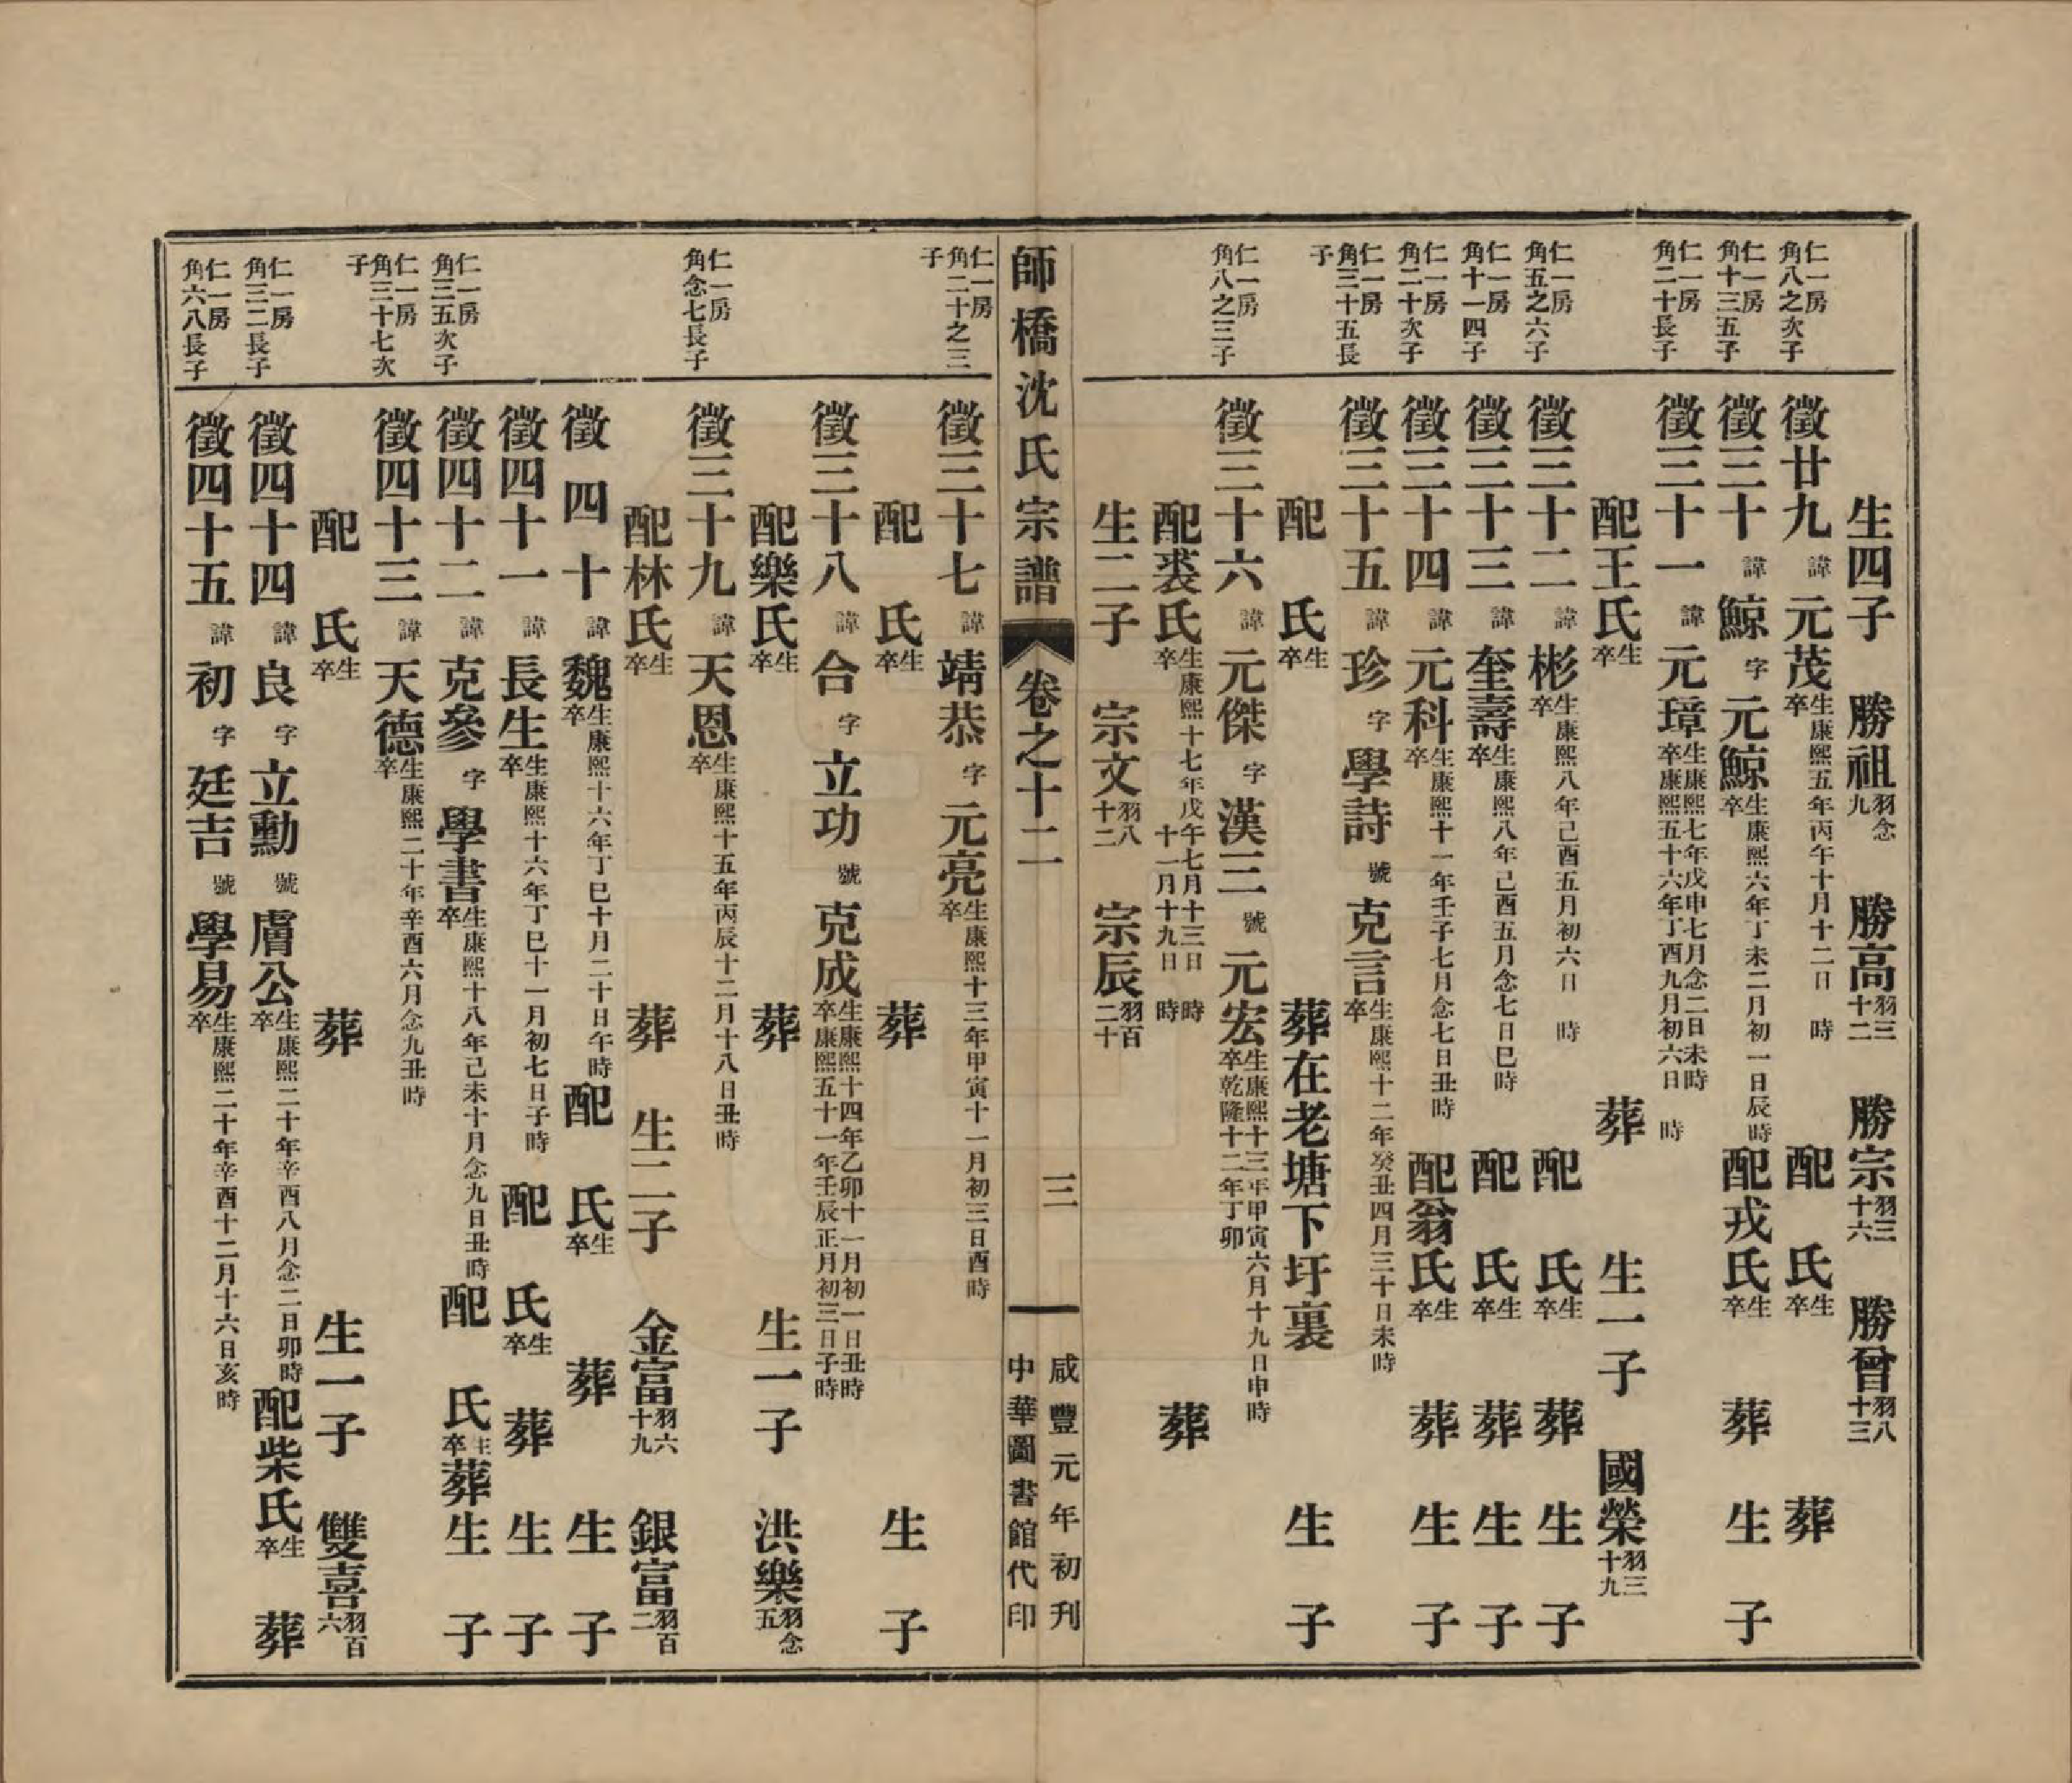 生四子 勝祖羽念九 勝高羽三十二 勝宗羽三十六 勝曾羽八十三
仁一房角八之次子
徵廿九 諱元茂 生康熙五年丙午十月十二日 時 卒 配 氏 生 卒 葬
仁一房角十三五子
徵三十 諱鯨 字元鯨 生康熙六年丁未二月初一日辰時 卒 配戎氏 生 卒 葬 生 子
仁一房角二十長子
徵三十一 諱元璋 生康熙七年戊申七月念二日未時 卒康熙五十六年丁酉九月初六日 時
配王氏 生 卒 葬 生一子 國榮羽三十九
仁一房角五之六子
徵三十二 諱彬 生康熙八年己酉五月初六日 時 卒 配 氏 生 卒 葬 生 子
仁一房角十一四子
徵三十三 諱奎壽 生康熙八年己酉五月念七日巳時 卒 配 氏 生 卒 葬 生 子
仁一房角二十次子
徵三十四 諱元科 生康熙十一年壬子七月念七日丑時 卒 配翁氏 生 卒 葬 生 子
仁一房角三十五長子
徵三十五 諱珍 字學詩 號克言 生康熙十二年癸丑四月三十日未時 卒
配 氏 生 卒 葬在老塘下圩裏 生 子
仁一房角八之三子
徵三十六 諱元傑 字漢三 號元宏 生康熙十三年甲寅六月十九日申時 卒乾隆十二年丁卯
配裘氏 生康熙十七年戊午七月十三日 時 卒 十一月十九日 時 葬
生二子 宗文羽八十二 宗辰羽百二十
師橋沈氏宗譜 卷之十二 三 咸豐元年初刊 中華圖書館代印
仁一房角二十之三子
徵三十七 諱靖恭 字元亮 生康熙十三年甲寅十一月初三日酉時 卒
配 氏 生 卒 葬 生 子
徵三十八 諱合 字立功 號克成 生康熙十四年乙卯十一月初一日丑時 卒康熙五十一年壬辰正月初三日子時
配樂氏 生 卒 葬 生一子 洪樂羽念五
仁一房角念七長子
徵三十九 諱天恩 生康熙十五年丙辰十二月十八日丑時 卒
配林氏 生 卒 葬 生二子 金富羽六十九 銀富羽百二
徵四十 諱魏 生康熙十六年丁巳十月二十日午時 卒 配 氏 生 卒 葬 生 子
徵四十一 諱長生 生康熙十六年丁巳十一月初七日子時 卒 配 氏 生 卒 葬 生 子
仁一房角三五次子
徵四十二 諱克參 字學書 生康熙十八年己未十月念九日丑時 卒 配 氏 生 卒 葬 生 子
仁一房角三十七次子
徵四十三 諱天德 生康熙二十年辛酉六月念九丑時 卒
配 氏 生 卒 葬 生一子 雙喜羽百六
仁一房角三二長子
徵四十四 諱良 字立勳 號膚公 生康熙二十年辛酉八月念二日卯時 卒 配柴氏 生 卒 葬
仁一房角六八長子
徵四十五 諱初 字廷吉 號學易 生康熙二十年辛酉十二月十六日亥時 卒